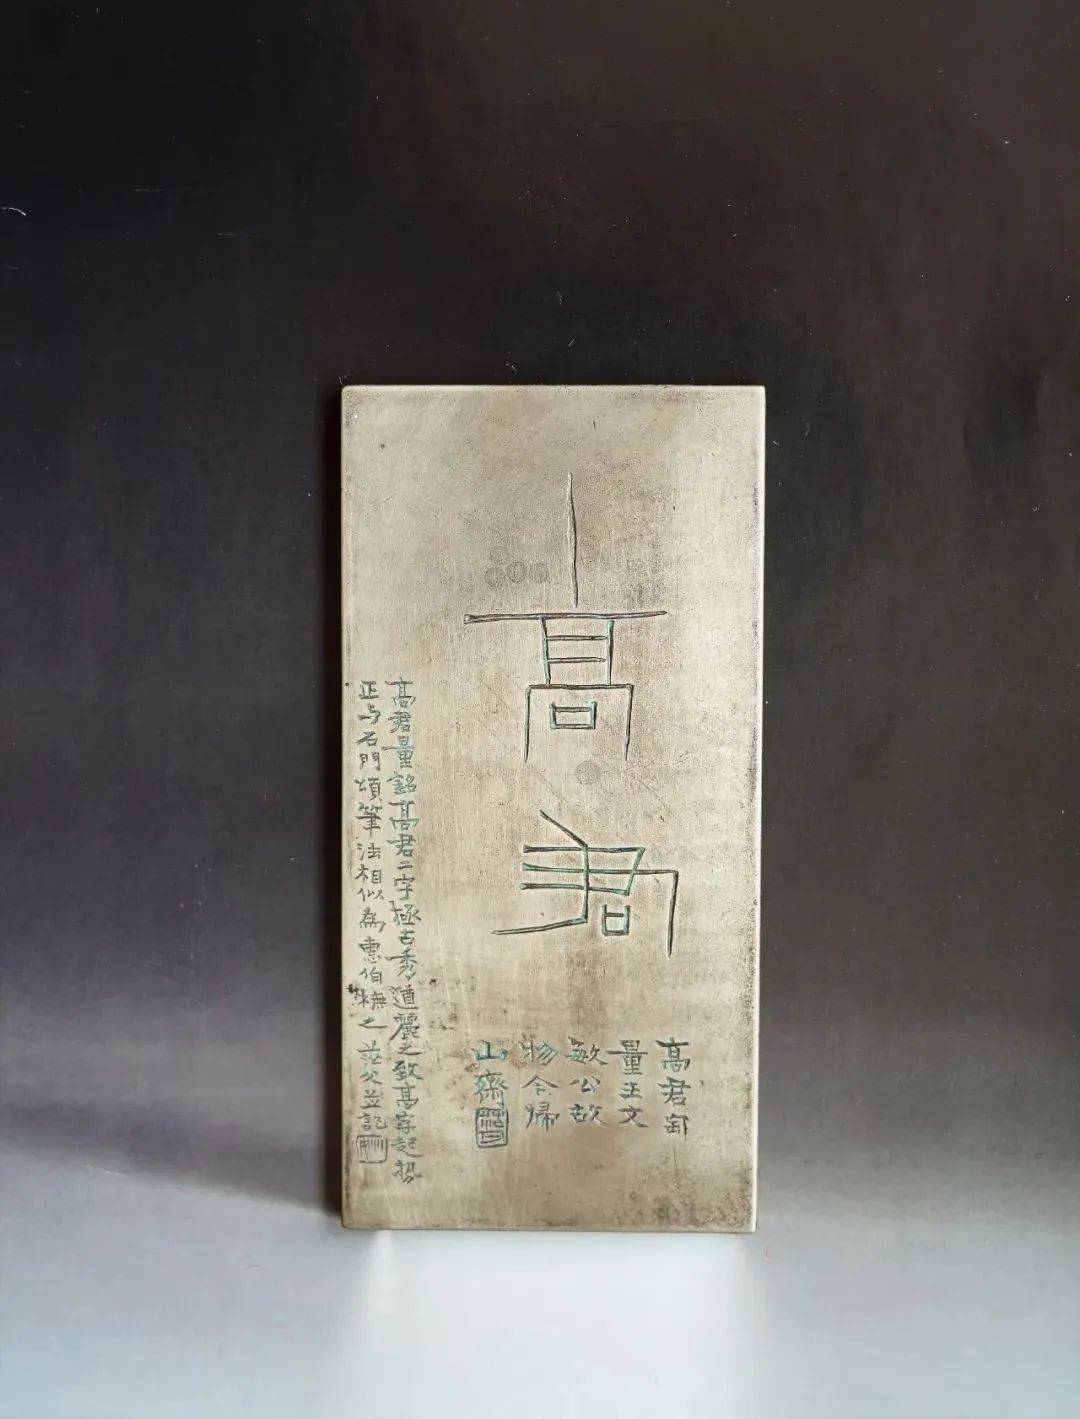 高君
高君
量王文
敏公故
物今歸
山齋
高君量銘高君二字極古秀遒麗之致高字起撇
正与石門頌筆法相似為惠伯橅之 茫父並記